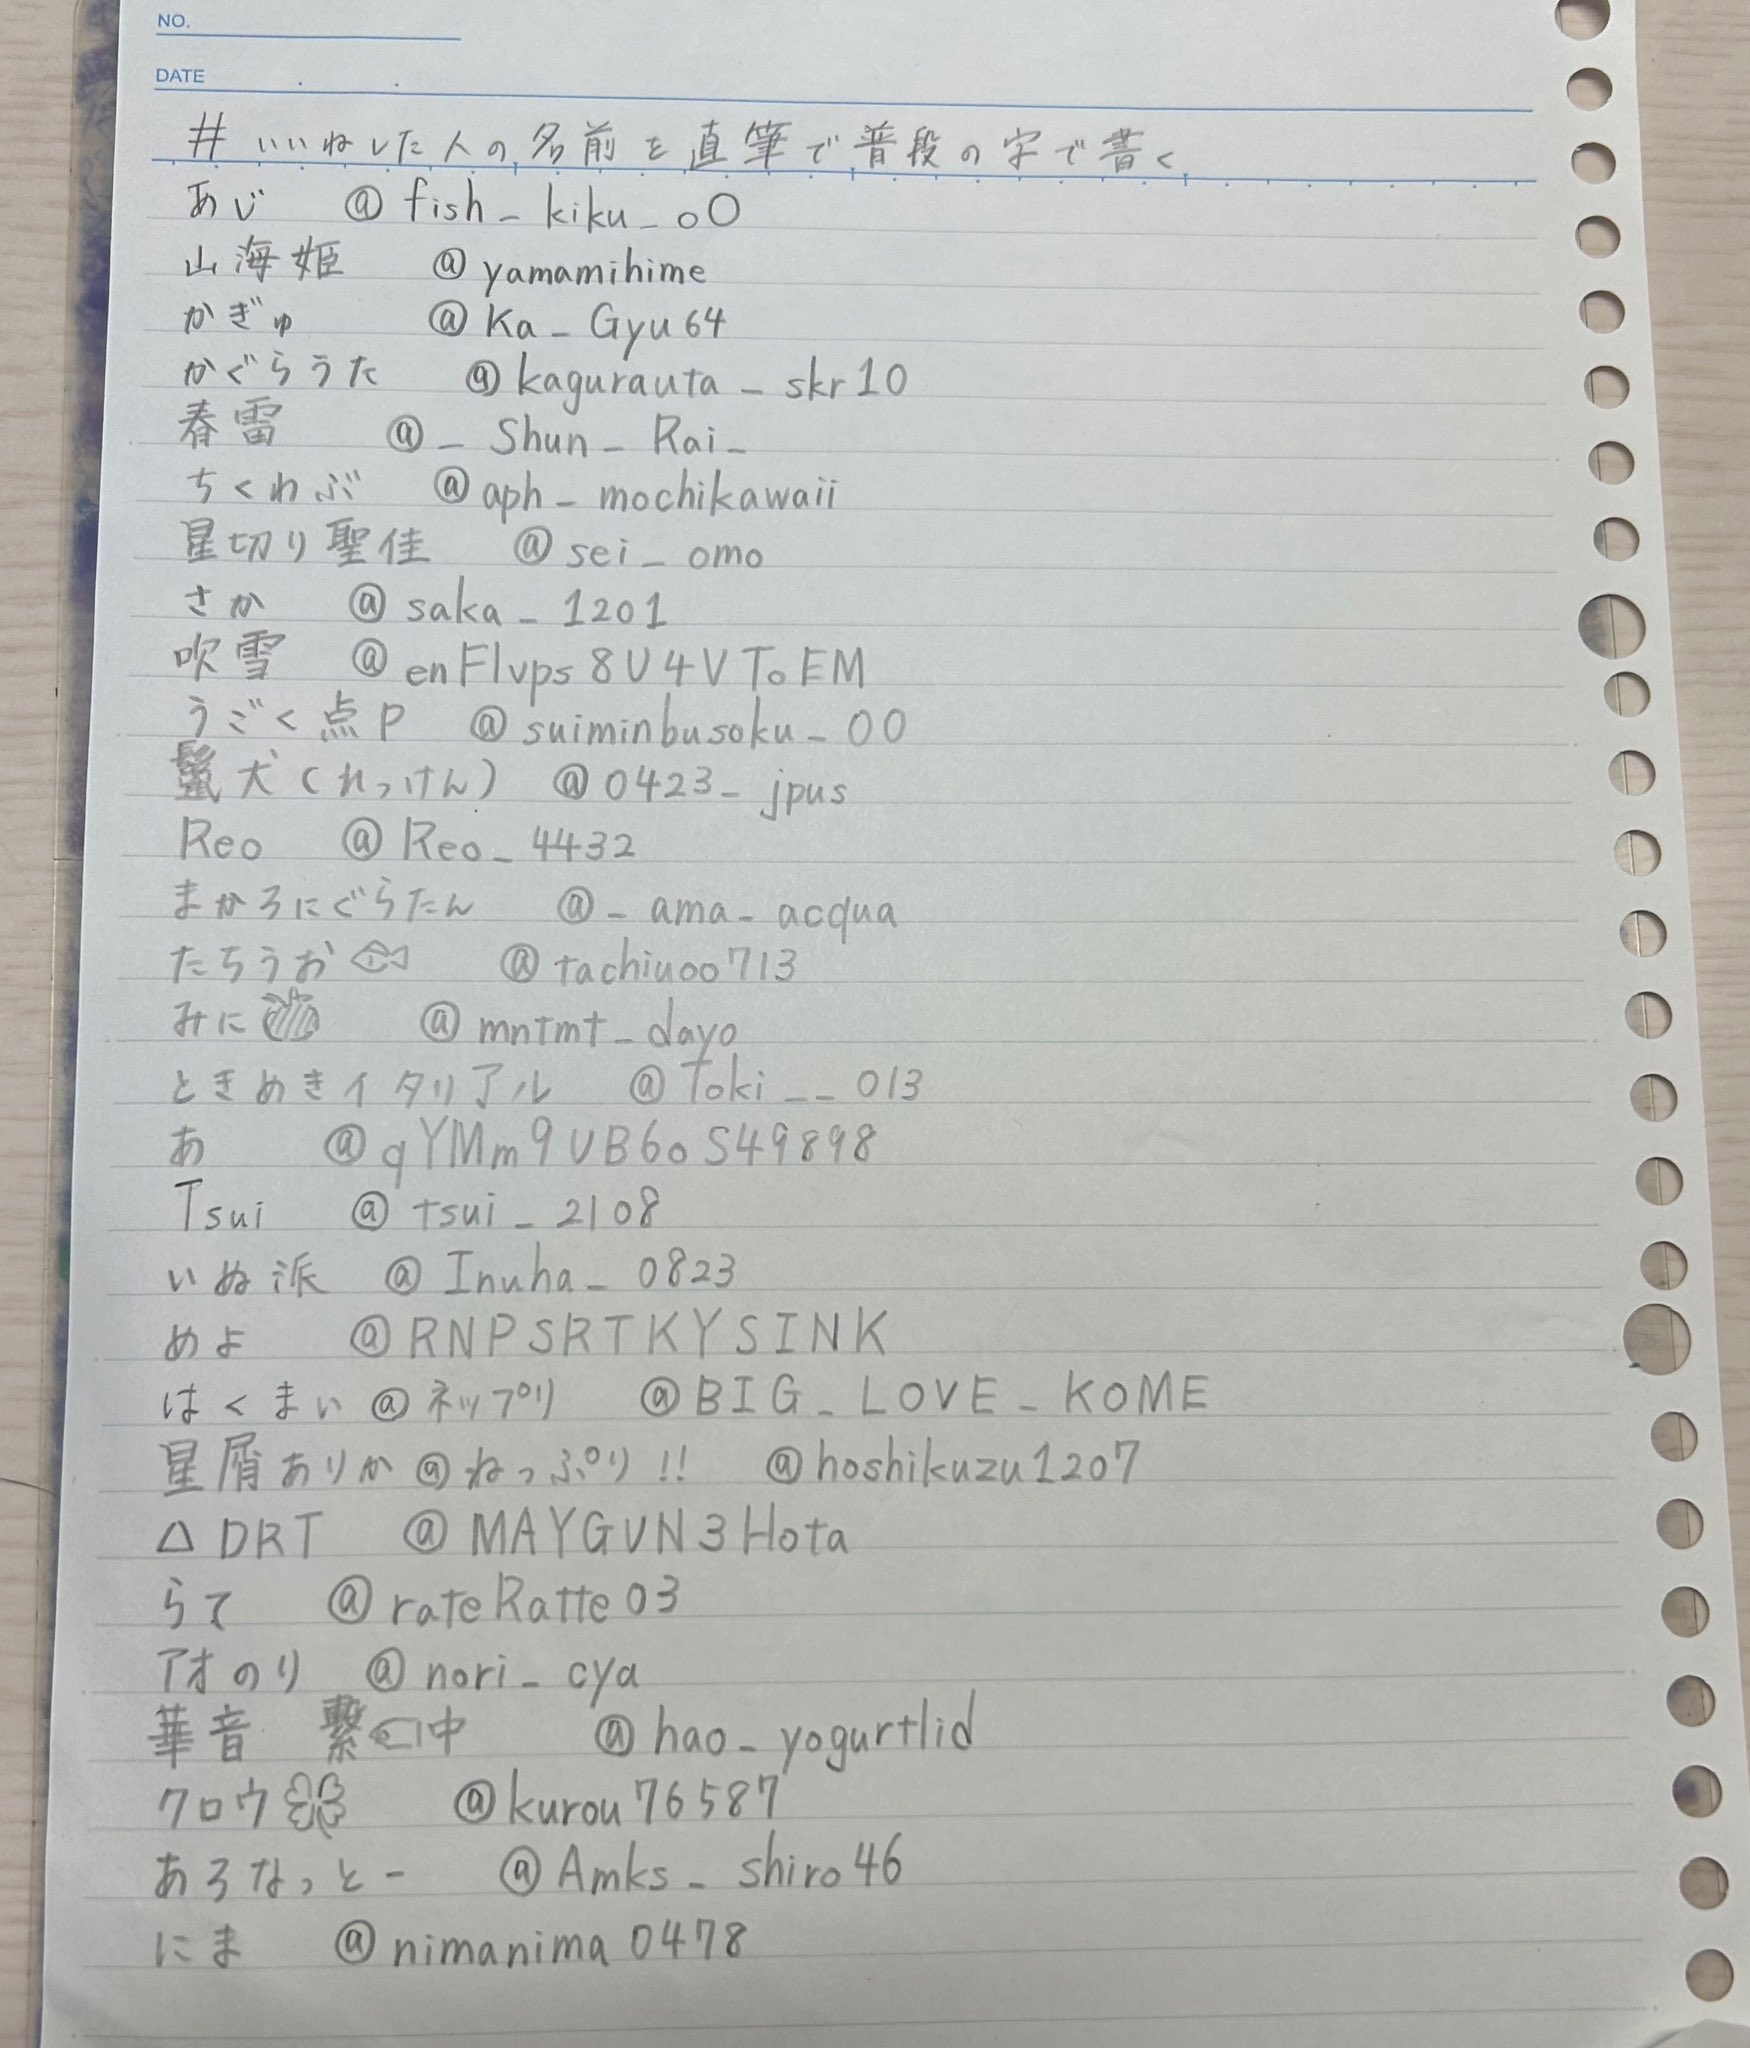 NO.
DATE
#いいねした人の名前を直筆で普段の字で書く
あじ @fish_kiku_oO
山海姫 @yamamihime
かぎゅ @Ka_Gyu64
かぐらうた @kagurauta_skr10
春雷 @_Shun_Rai_
ちくわぶ @aph_mochikawaii
星切り聖佳 @sei_omo
さか @saka_1201
吹雪 @enFlvps8U4VToEM
うごく点P @suiminbusoku_00
鬣犬(れっけん) @0423_jpus
Reo @Reo_4432
まかろにぐらたん @_ama_acqua
たちうお🐟 @tachiuoo713
みに🍅 @mntmt_dayo
ときめきイタリアル @Toki__013
あ @qYMm9UB6oS49898
Tsui @tsui_2108
いぬ派 @Inuha_0823
めよ @RNPSRTKYSINK
はくまい@ネップリ @BIG_LOVE_KOME
星屑ありか@ねっぷり!! @hoshikuzu1207
△DRT @MAYGUN3Hota
らて @rateRatte03
アオのり @nori_cya
華音 繋☜中 @hao_yogurtlid
クロウ🍀 @kurou76587
あろなっとー @Amks_shiro46
にま @nimanima0478